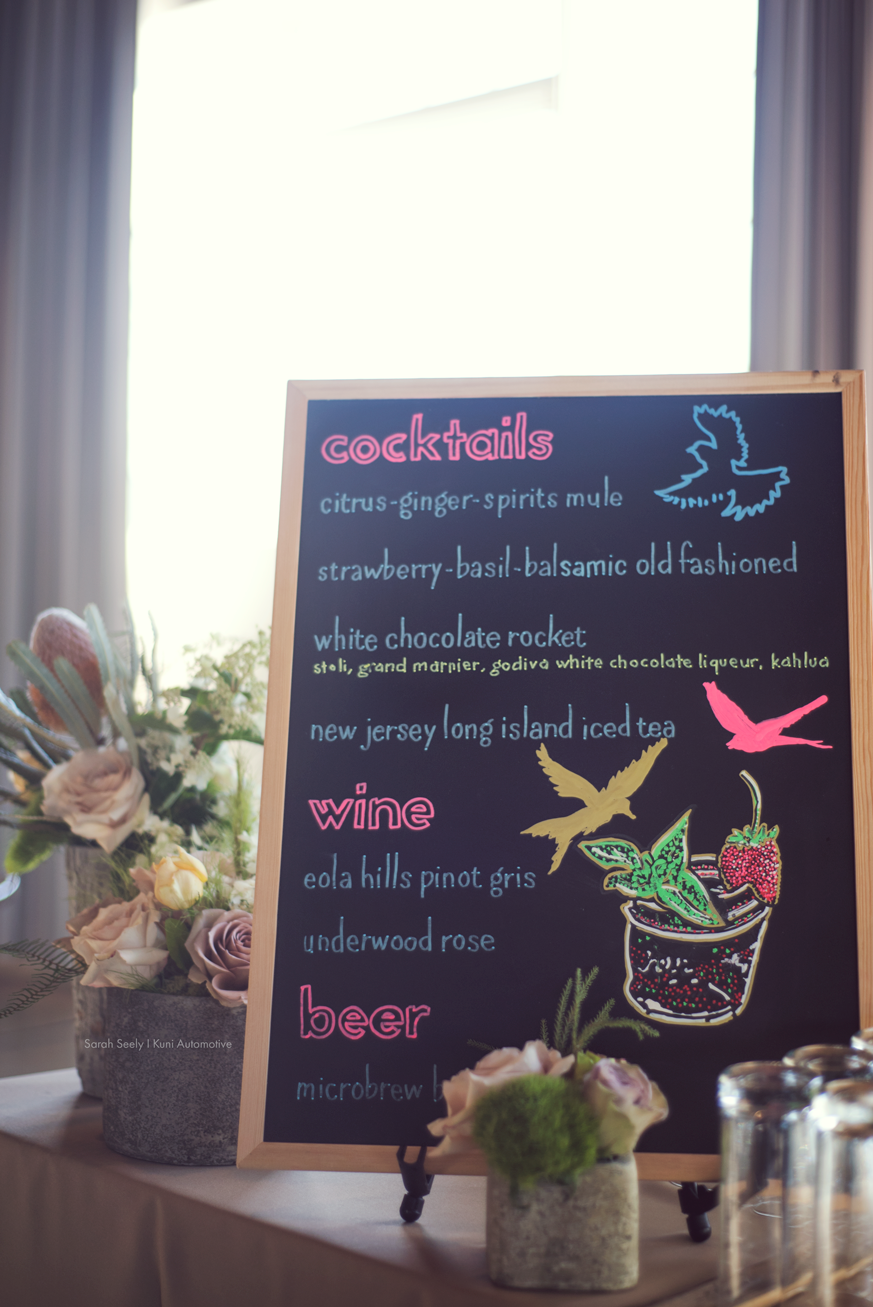 cocktails
citrus-ginger-spirits mule
strawberry-basil-balsamic old fashioned
white chocolate rocket
stoli, grand marnier, godiva white chocolate liqueur, kahlua
new jersey long island iced tea
wine
eola hills pinot gris
underwood rose
beer
microbrew
Sarah Seely I Kuni Automotive